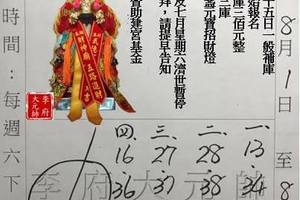 8月1至8
十五日一般補庫
庫二佰元整
三庫
益元寶招財燈
及七月星期六濟世暫停
,請提早告知
贊助建宮基金
李府
大元帥
時間:每週六下
李府大元帥
一.13.34
二.28.38
三.27.37
四.16.36